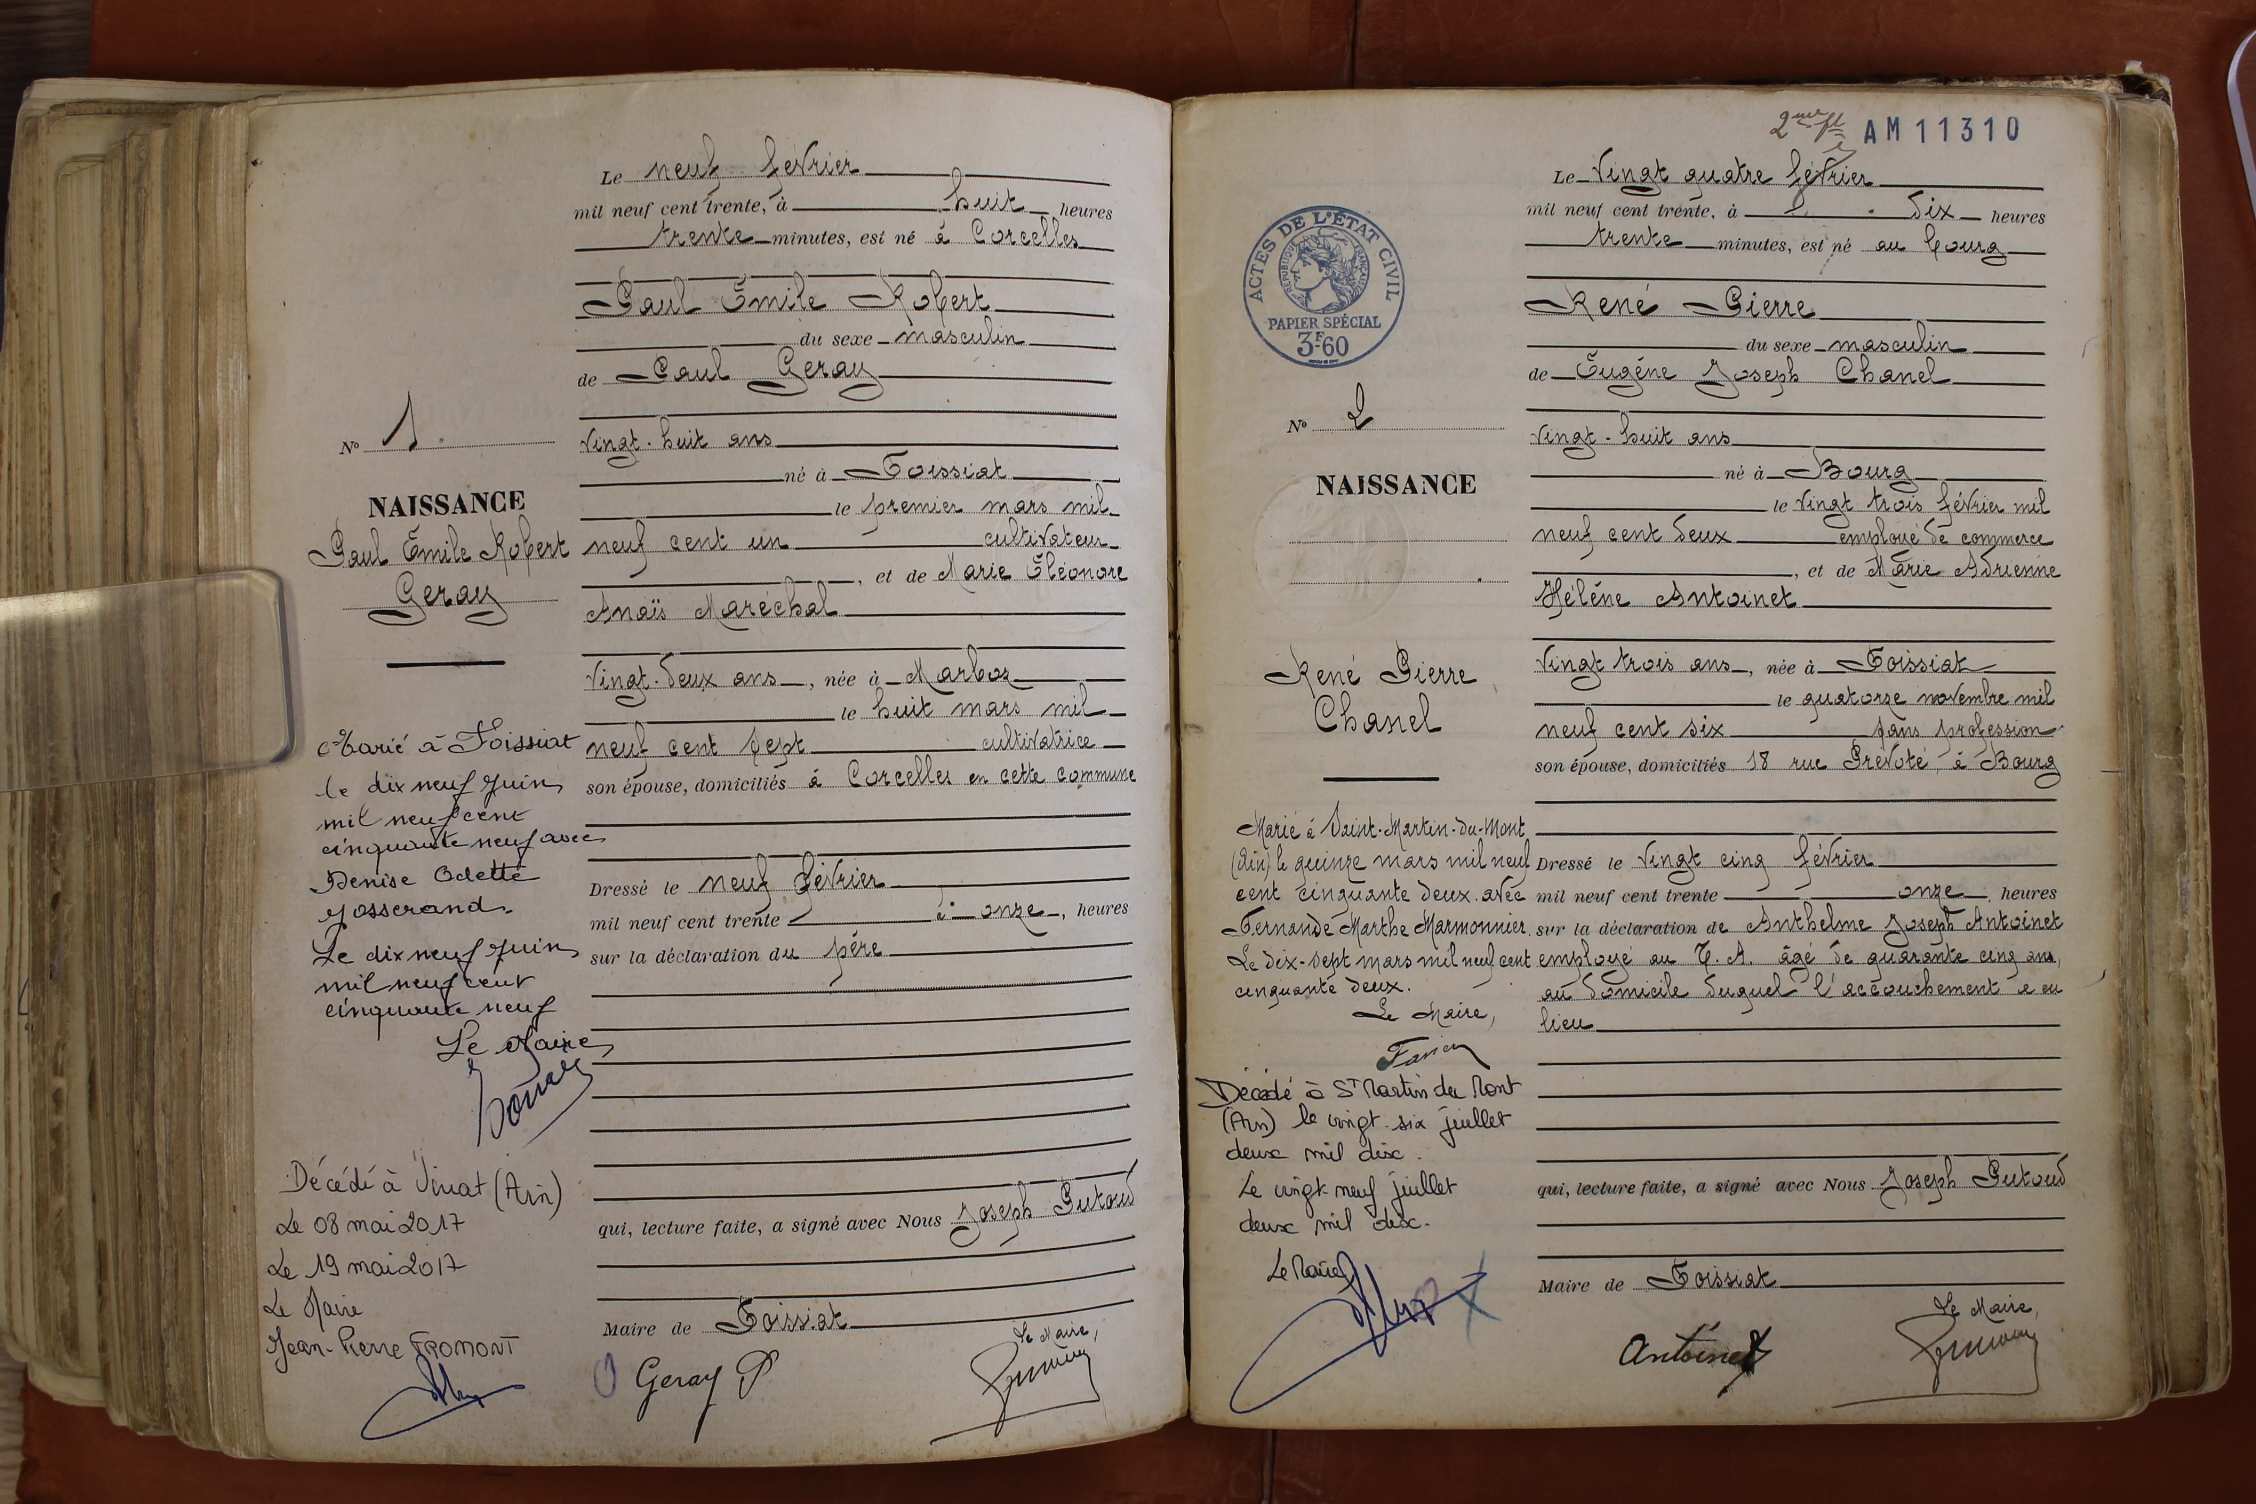 Le neuf février
mil neuf cent trente, à huit heures
trente minutes, est né à Corcelles
Paul Émile Robert
du sexe masculin
de Paul Geray
vingt-huit ans
né à Foissiat
le premier mars mil
neuf cent un cultivateur
, et de Marie Éléonore
Anaïs Maréchal
vingt-deux ans, née à Marboz
le huit mars mil
neuf cent sept cultivatrice
son épouse, domiciliés à Corcelles en cette commune
Dressé le neuf février
mil neuf cent trente à onze, heures
sur la déclaration du père
qui, lecture faite, a signé avec Nous Joseph Putoud
Maire de Foissiat
Le Maire,
Geray P
No 1.
NAISSANCE
Paul Émile Robert
Geray
Marié à Foissiat
le dix neuf juin
mil neuf cent
cinquante neuf avec
Denise Odette
Josserand.
Le dix neuf juin
mil neuf cent
cinquante neuf
Le Maire
Décédé à Viriat (Ain)
Le 08 mai 2017
Le 19 mai 2017
Le Maire
Jean-Pierre FROMONT
AM11310
2me
Le vingt quatre février
mil neuf cent trente, à dix heures
trente minutes, est né au bourg
René Pierre
du sexe masculin
de Eugéne Joseph Chanel
vingt-huit ans
né à Bourg
le vingt trois février mil
neuf cent deux employé de commerce
, et de Marie Adrienne
Héléne Antoinet
vingt trois ans, née à Foissiat
le quatorze novembre mil
neuf cent six sans profession
son épouse, domiciliés 18 rue Prévoté, à Bourg
Dressé le vingt cinq février
mil neuf cent trente onze, heures
sur la déclaration de Anthelme Joseph Antoinet
employé au T. A. âgé de quarante cinq ans,
au domicile duquel l'accouchement a eu
lieu
qui, lecture faite, a signé avec Nous Joseph Putoud
Maire de Foissiat
Le Maire,
Antoinet
ACTES DE L'ÉTAT CIVIL
RÉPUBLIQUE FRANÇAISE
PAPIER SPÉCIAL
3F60
No 2
NAISSANCE
René Pierre
Chanel
Marié à Saint-Martin-du-Mont
(Ain) le quinze mars mil neuf
cent cinquante deux. avec
Fernande Marthe Marmonnier.
Le dix-sept mars mil neuf cent
cinquante deux.
Le Maire,
Décédé à St Martin du Mont
(Ain) le vingt-six juillet
deux mil dix.
Le vingt-neuf juillet
deux mil dix.
Le Maire